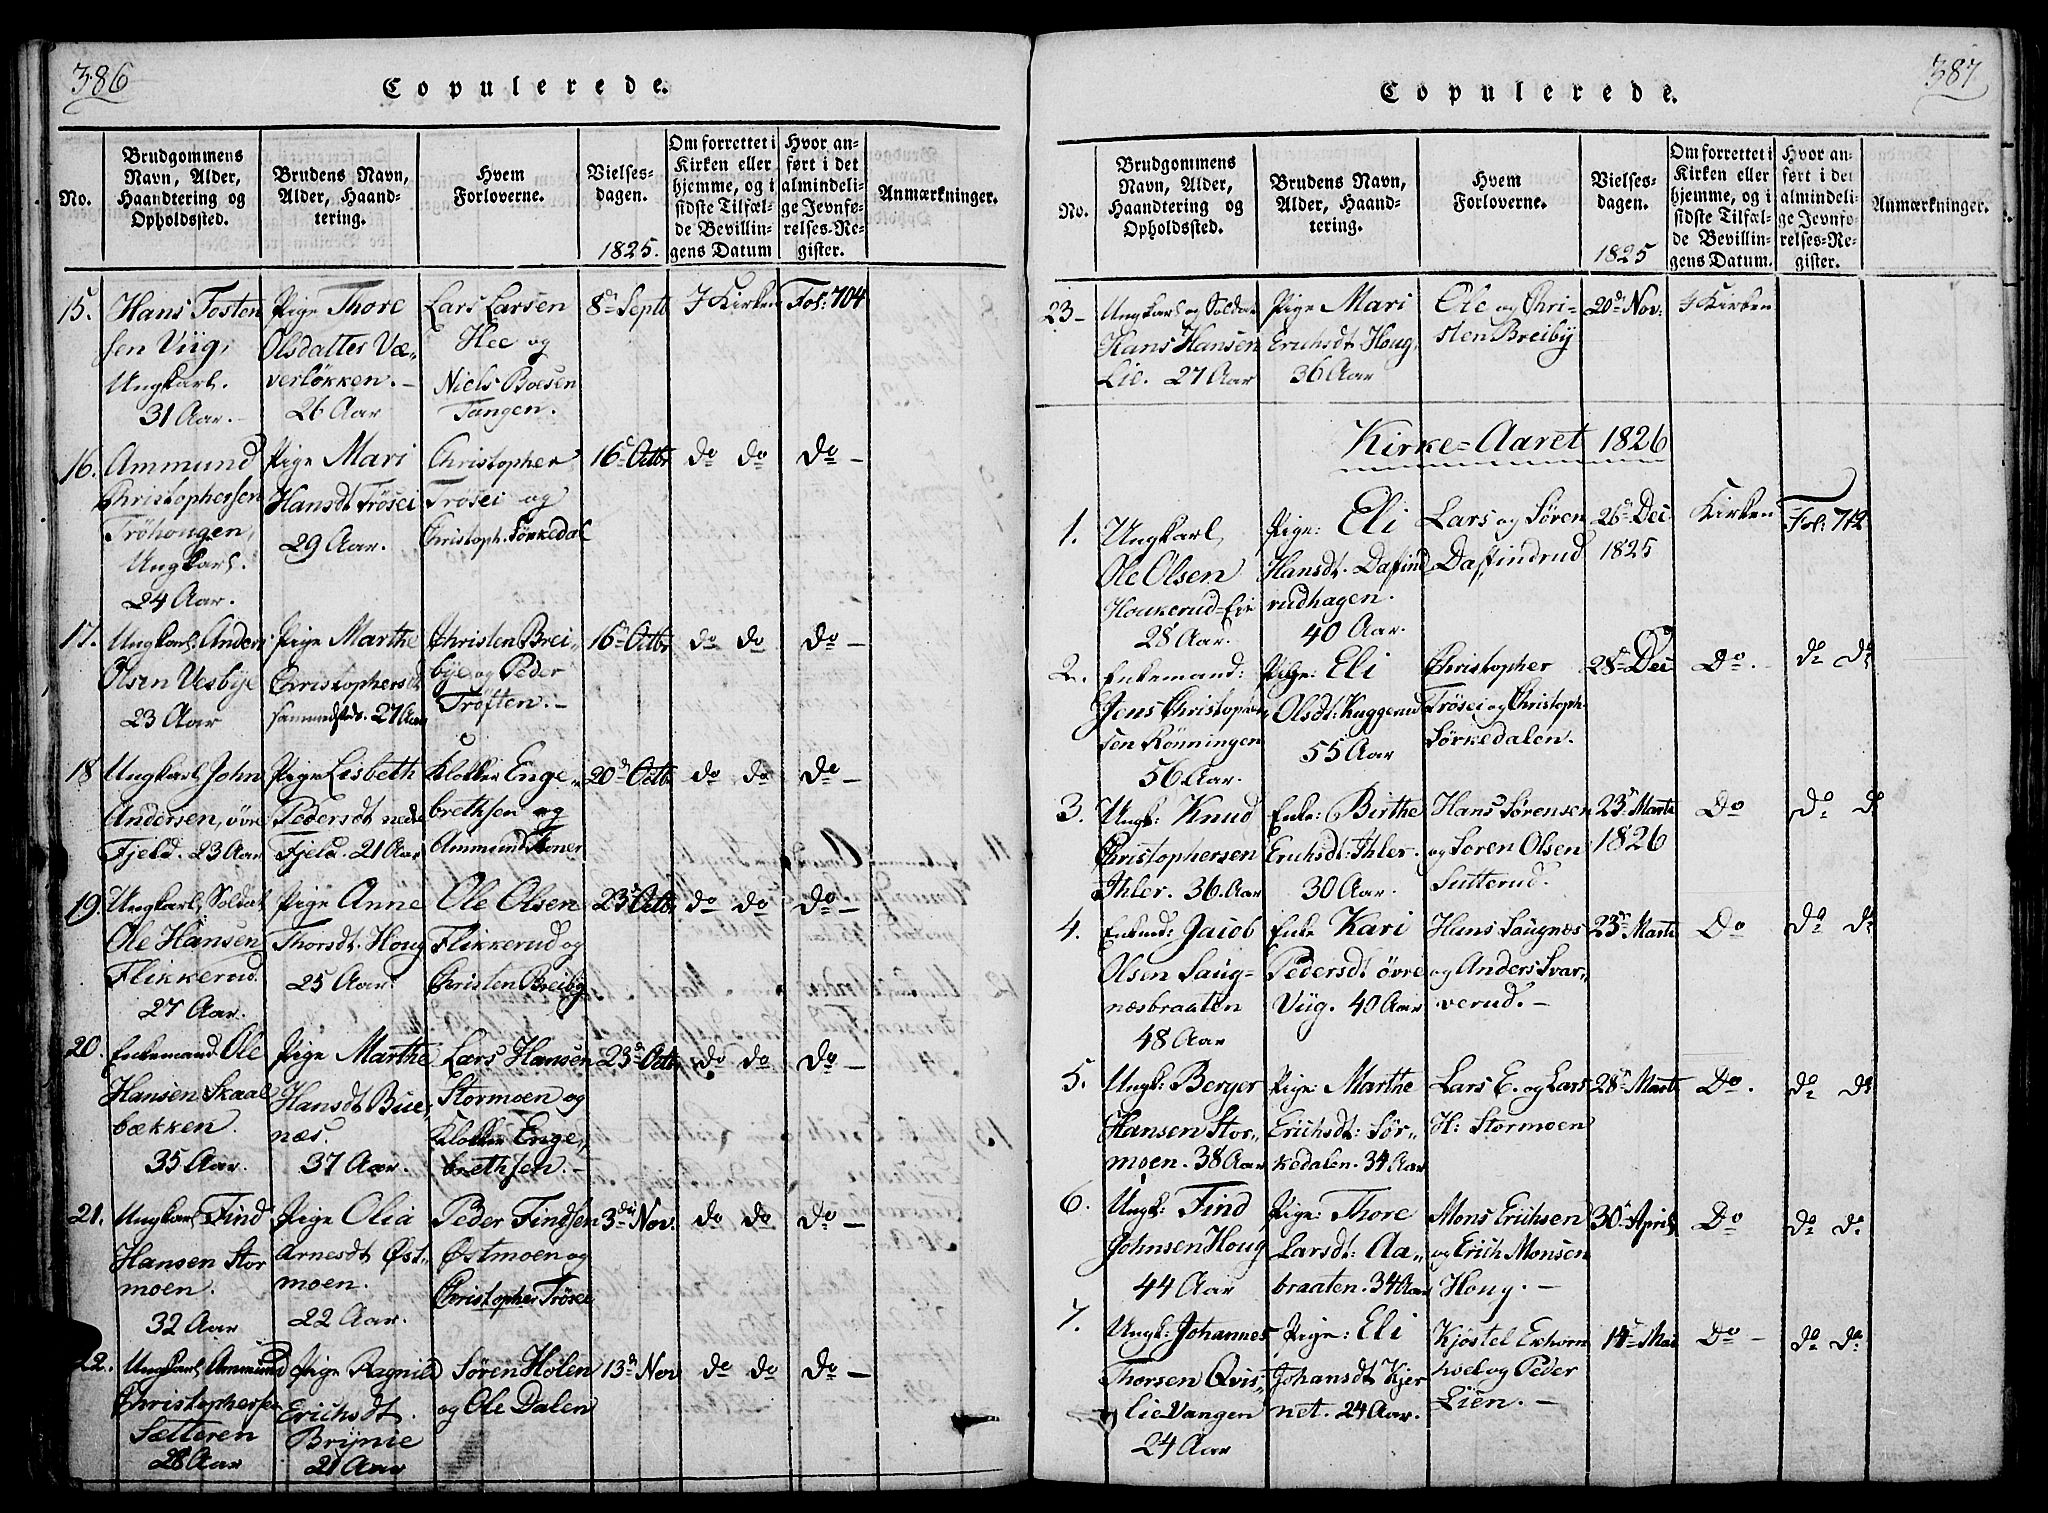 386
Copulerede.
No.
Brudgommens
Navn, Alder,
Haandtering og
Opholdssted.
Brudens Navn,
Alder, Haand-
tering.
Hvem
Forloverne.
Vielses-
dagen.
1825.
Om forrettet i
Kirken eller
hjemme, og i
sidste Tilfæl-
de Bevillin-
gens Datum
Hvor an-
ført i det
almindeli-
ge Jevnfø-
relses-Re-
gister.
Anmærkninger.
15.
Hans Tosten
sen Viig,
Ungkarl.
31 Aar.
Pige Thore
Olsdatter Væ-
verløkken.
26 Aar
Lars Larsen
Hee og
Niels Boesen
Tangen.
8de Septb
I Kirken
Fol: 704
16.
Ammund
Christophersen
Tröhongen,
Ungkarl.
24 Aar.
Pige Mari
Hansdt Trösei
29 Aar.
Christopher
Trösei og
Christoph. Sörkedal
16de Octbr
do do
do —
17.
Ungkarl Anders
Olsen Vesbye
23 Aar
Pige Marthe
Christophersdt
sammesteds. 27 Aar
Christen Brei-
bye og Peder
Tröften. —
16de Octbr
do do
do —
18
Ungkarl John
Andersen, övre
Fjeld. 23 Aar
Pige Lisbeth
Pedersdt nedre
Fjeld. 21 Aar
Klokker Enge-
brethsen og
Ammund
20de Octbr
do do
do —
19.
Ungkarl, Soldat
Ole Hansen
Flikkerud.
27 Aar.
Pige Anne
Thorsdt. Houg
25 Aar.
Ole Olsen
Flikkerud og
Christen Breibye
23de Octbr
do do
do —
20.
Enkemand Ole
Hansen Skaal
bækken
35 Aar.
Pige Marthe
Hansdt Bue-
næs.
37 Aar.
Lars Hansen
Stormoen og
Klokker Enge-
brethsen. —
23de Octbr
do do
do —
21.
Ungkarl Find
Hansen Stor
moen.
32 Aar
Pige Olia
Arnesdt Øst-
moen.
22 Aar.
Peder Findsen
Østmoen og
Christopher Trösei
3die Nov.
do do
do —
22.
Ungkarl Ammund
Christophersen
Sætteren
28 Aar
Pige Ragnild
Erichsdt.
Brynie
21 Aar
Sören Holen
og Ole Dalen
13de Nov
do do
do —
387
Copulerede.
No.
Brudgommens
Navn, Alder,
Haandtering og
Opholdssted.
Brudens Navn,
Alder, Haand-
tering.
Hvem
Forloverne.
Vielses-
dagen.
1825
Om forrettet i
Kirken eller
hjemme, og i
sidste Tilfæl-
de Bevillin-
gens Datum.
Hvor an-
ført i det
almindeli-
ge Jevnfø-
relses-Re-
gister.
Anmærkninger.
23—
Ungkarl og Soldat
Hans Hansen
Lie. 27 Aar
Pige Mari
Erichsdt Houg,
36 Aar
Ole og Chri-
sten Breiby
20de Nov:
I Kirken
Kirke-Aaret 1826
1.
Ungkarl
Ole Olsen
Houkerud-Eie
28 Aar.
Pige: Eli
Hansdt. Dafind
rudhagen.
40 Aar.
Lars og Sören
Dafindrud
26de Dec.
1825
Kirken
Fol: 712
2.
Enkemand:
Jens Christopher-
sen Rönningen
56 Aar.
Pige: Eli
Olsdt: Kuggerud
55 Aar
Christopher
Trösei og Christoph.
Sörkedalen.
28de Dec
Do.
do do
3.
Ungk: Knud
Christophersen
Ihler. 36. Aar
Enke: Birthe
Erichsdt: Ihler.
30 Aar.
Hans Sörensen
og Soren Olsen
Sutterud.
23de Marts
1826
Do
do do
4.
Enkmd: Jacob
Olsen Saug-
næsbraaten
48 Aar
Enke Kari
Pedersdt övre
Viig. 40 Aar
Hans Saugnæs
og Anders Svar-
verud. —
23de Marts
Do
do do
5.
Ungk: Berger
Hansen Stor-
moen. 38 Aar
Pige Marthe
Erichsdt: Sör-
kedalen. 34 Aar
Lars E. og Lars
H: Stormoen
28de Marts
Do.
do do
6.
Ungk: Find
Johnsen Houg
44 Aar
Pige: Thore
Larsdt: Aa-
braaten. 34 Aar
Mons Erichsen
og Erich Monsen
Houg. —
30te April
Do
do do
7.
Ungk: Johannes
Thorsen Qvis-
lie Vangen
24 Aar
Pige: Eli
Johansdt Kjer
net. 24 Aar.
Kjöstel Exhorn
hoel og Peder
Lien. —
14de Mai
Do —
do do